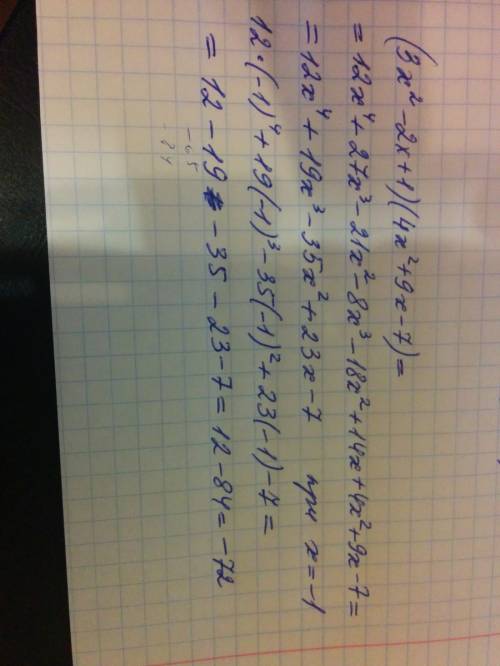 (3x² - 2x + 1)(4x² + 9x - 7) =
= 12x⁴ + 27x³ - 21x² - 8x³ - 18x² + 14x + 4x² + 9x - 7 =
= 12x⁴ + 19x³ - 35x² + 23x - 7 при x = -1
12·(-1)⁴ + 19(-1)³ - 35(-1)² + 23(-1) - 7 =
= 12 - 19 - 35 - 23 - 7 = 12 - 84 = -72
-65
84